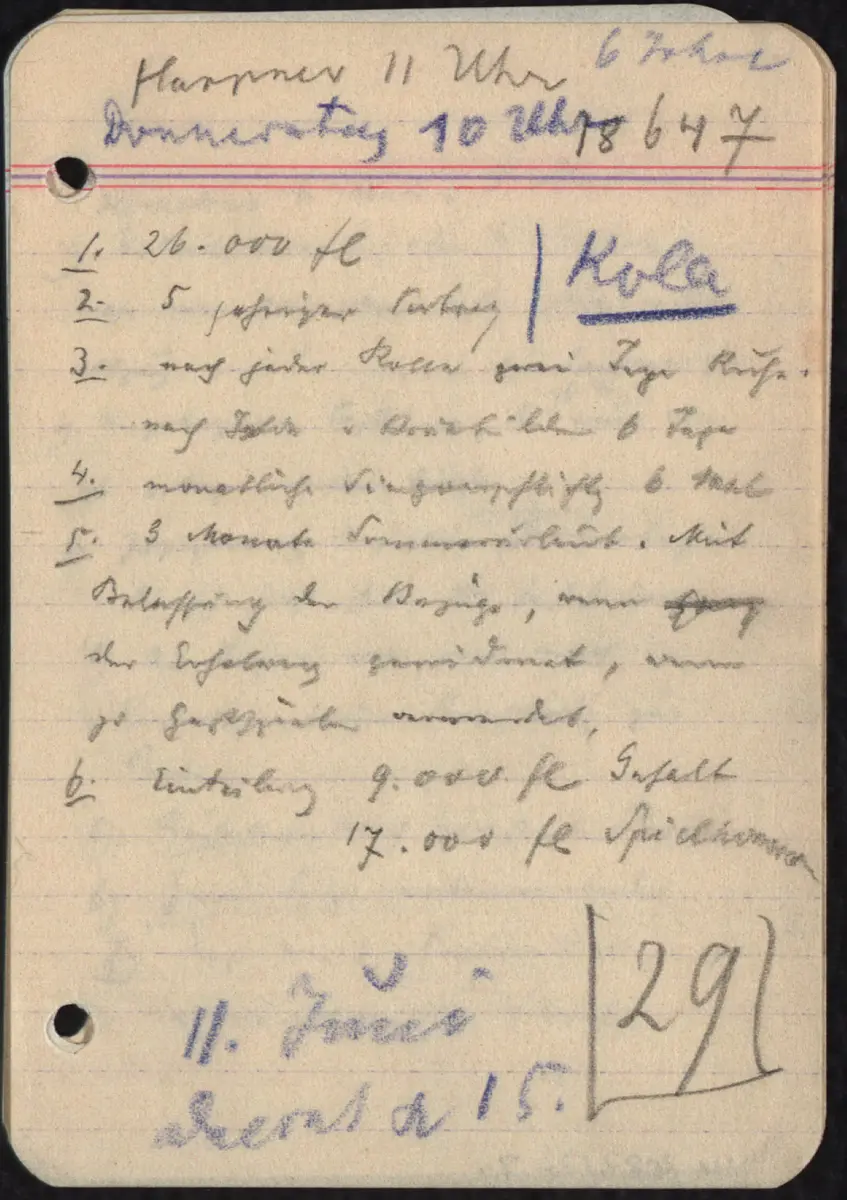 6 Jahre
Harpner 11 Uhr
Donnerstag 10 Uhr 18647
1. 26.000 fl
Kolla
2. 5 jähriger Vertrag
3. nach jeder Rolle zwei Tage Ruhe.
nach Isolde u Brünhilde 6 Tage
4. monatliche Singverpflichtg 6 Mal
5. 3 Monate Sommerurlaub. Mit
Belassung der Bezüge, wenn
der Erholung gewidmet, wenn
zu Gastspielen verwendet,
6. Einteilung 9.000 fl Gehalt
17.000 fl Spielhonorar
29
11. Juni
15.